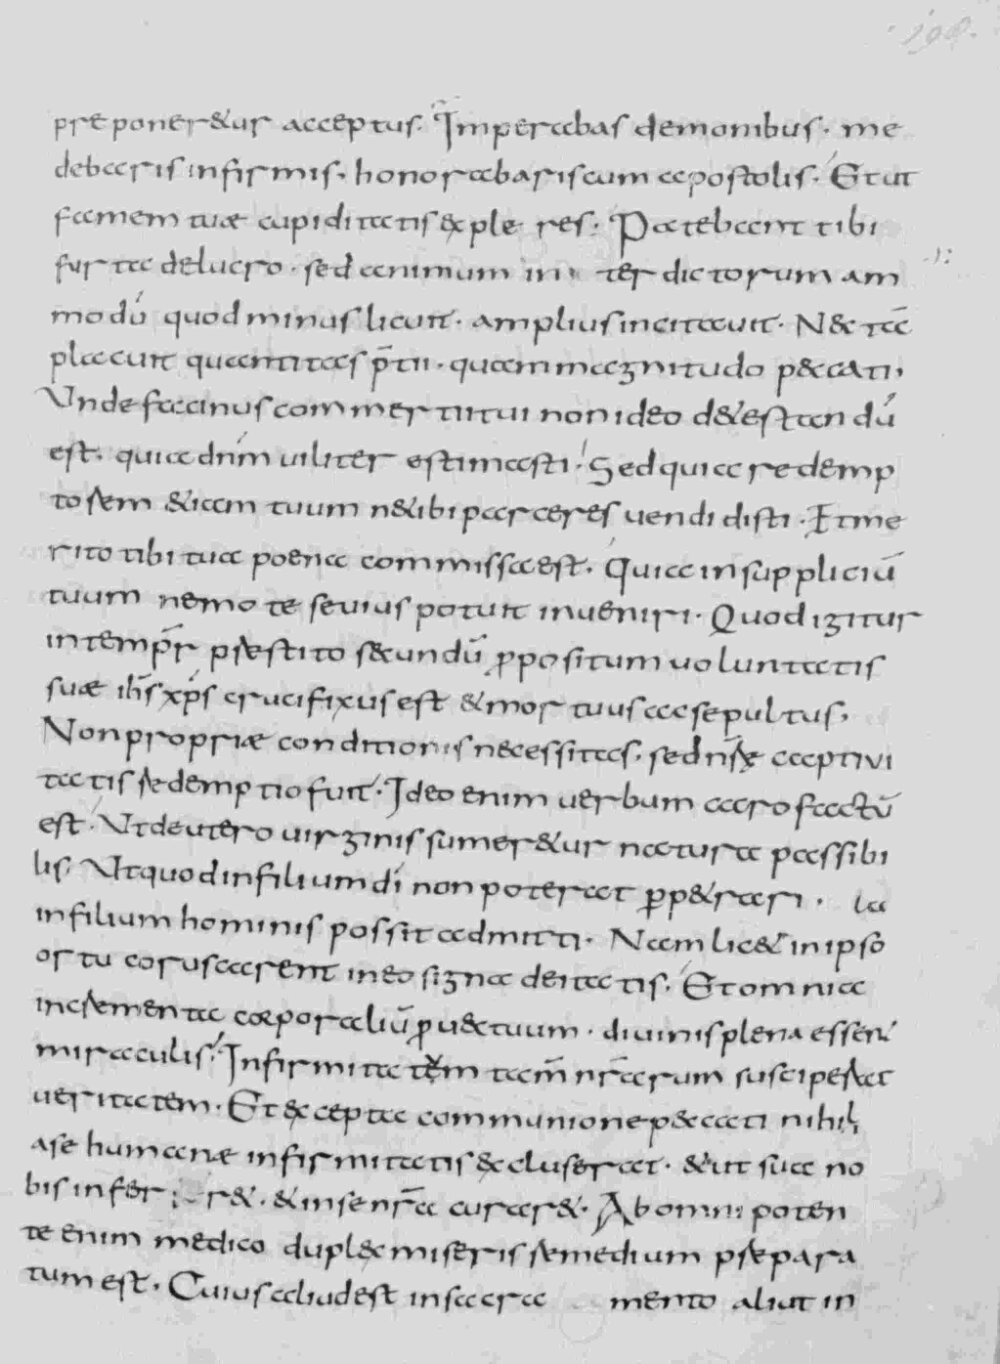 198.
preponeretur acceptus. Imperabas demonibus. me
debaris infirmis. honorabaris cum apostolis. Et ut
famem tuae cupiditatis exple res. Patebant tibi
furta delucro. sed animum in ter dictorum am
modū quod minus licuit. amplius incitauit. Nec tā
placuit quantitas p̄tii. quam magnitudo peccati,
Unde facinus commertii tui non ideo detestandū
est. quia dnm uiliter estimasti. Sed quia redemp
torem etiam tuum nec tibi parceres uendidisti. Et me
rito tibi tua poena commissa est. Quia in suppliciū
tuum nemo te seuius potuit inueniri. Quod igitur
in temp̄r prestito secundū ꝓpositum uoluntatis
suae ih̄s xp̄s crucifixus est & mortuus ac sepultus,
Non propriae conditionis necessitas. sed nr̄ę captivi
tatis redemptio fuit. Ideo enim uerbum caro factū
est. Ut de utero uirginis sumeretur natura passibi
lis. Ut quod in filium di non poterat ꝑpetrari.
in filium hominis possit admitti. Nam licet in ipso
ortu coruscarent in eo signa deitatis. Et omnia
incrementa corporaliū ꝓuectuum. diuinis plena essent
miraculis. Infirmitatem tam̄ nr̄arum susciperat
ueritatem. Et excepta communione peccati nihil
a se humanae infirmitatis excluserat. & ut sua no
bis infer r&. & in se nr̄a curar&. Ab omni poten
te enim medico duplex miseris remedium prepara
tum est. Cuius aliud est in sacra mento aliut in